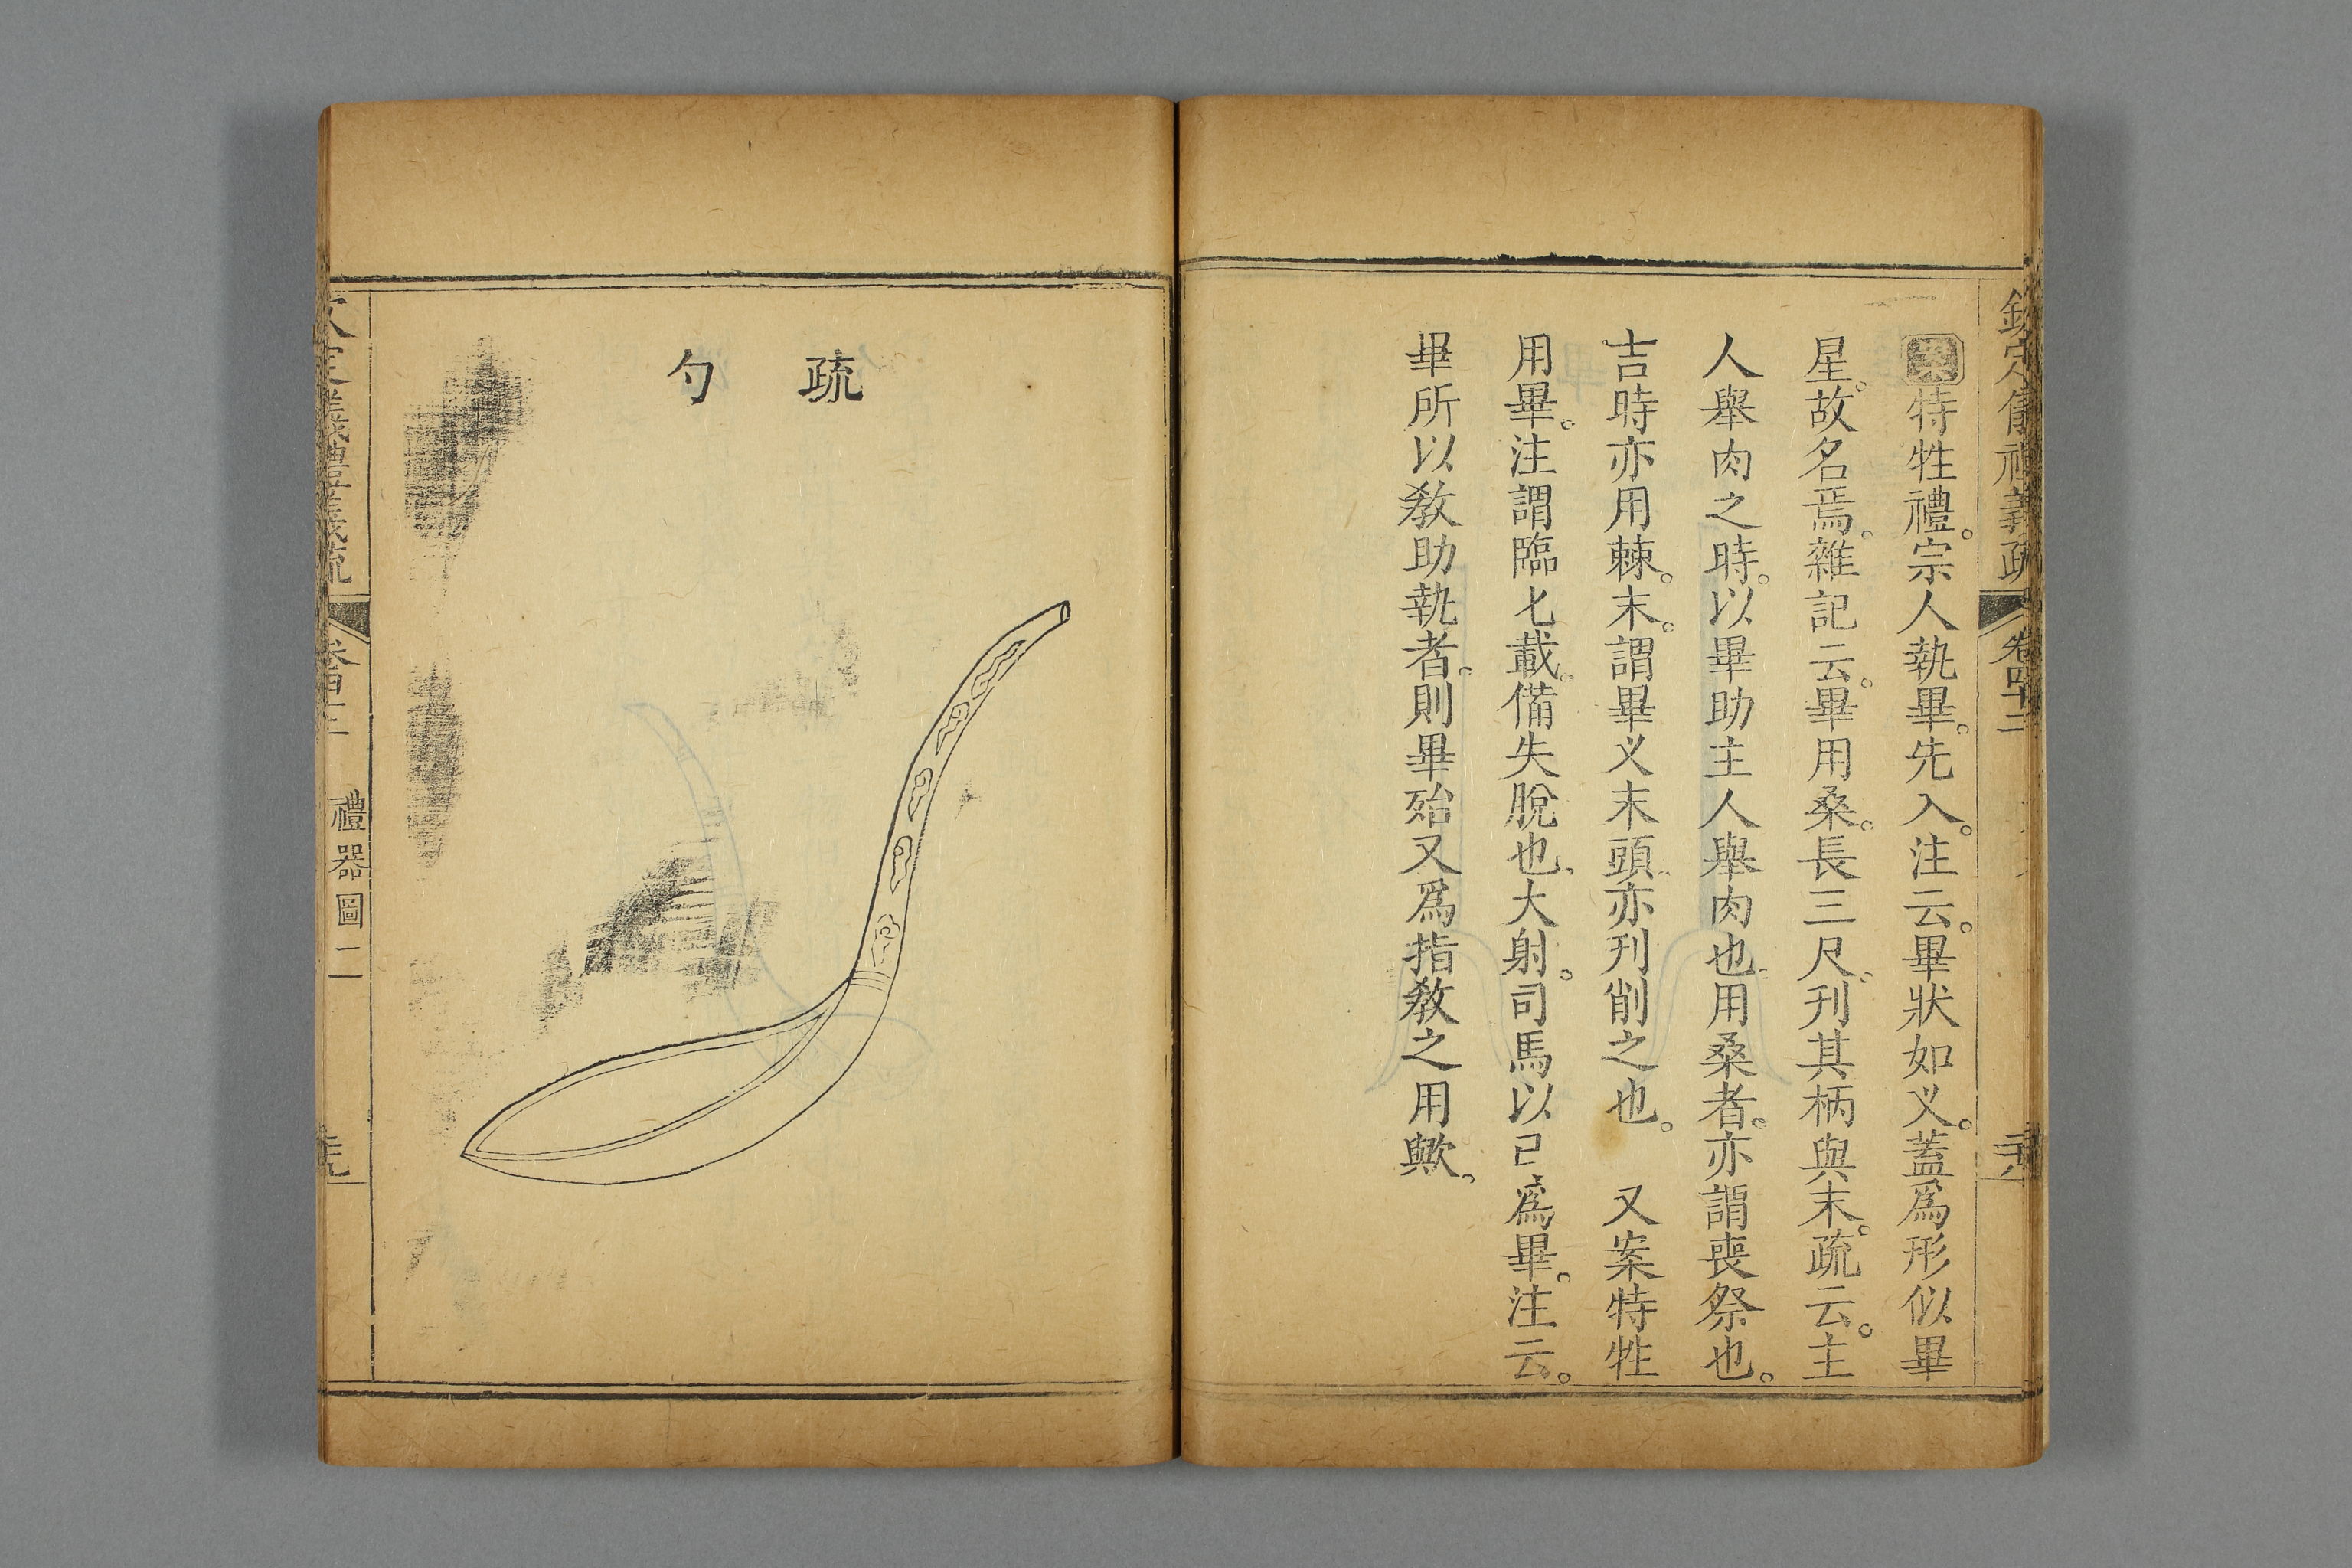 欽定儀禮義疏 卷四十二
案特牲禮。宗人執畢。先入。注云。畢狀如义。蓋爲形似畢
星。故名焉。雜記云。畢用桑。長三尺。刋其柄與末。疏云。主
人舉肉之時。以畢助主人舉肉也。用桑者。亦謂喪祭也。
吉時亦用棘。末。謂畢义末頭。亦刋削之也。 又案特牲
用畢。注謂臨匕載。備失脫也。大射。司馬以己爲畢。注云。
畢所以敎助執者。則畢殆又爲指敎之用歟。
疏勺
欽定儀禮義疏 卷四十二 禮器圖二